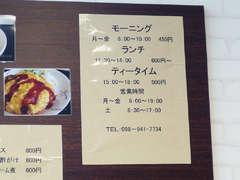 モーニング
月~金 8:00~10:00 450円
ランチ
11:30~15:00 600円~
ティータイム
15:00~18:00 500円
営業時間
月~金 8:00~19:00
土 8:30~17:00
TEL:098-941-7734
ス 800円
がけ 600円
ーム煮 800円